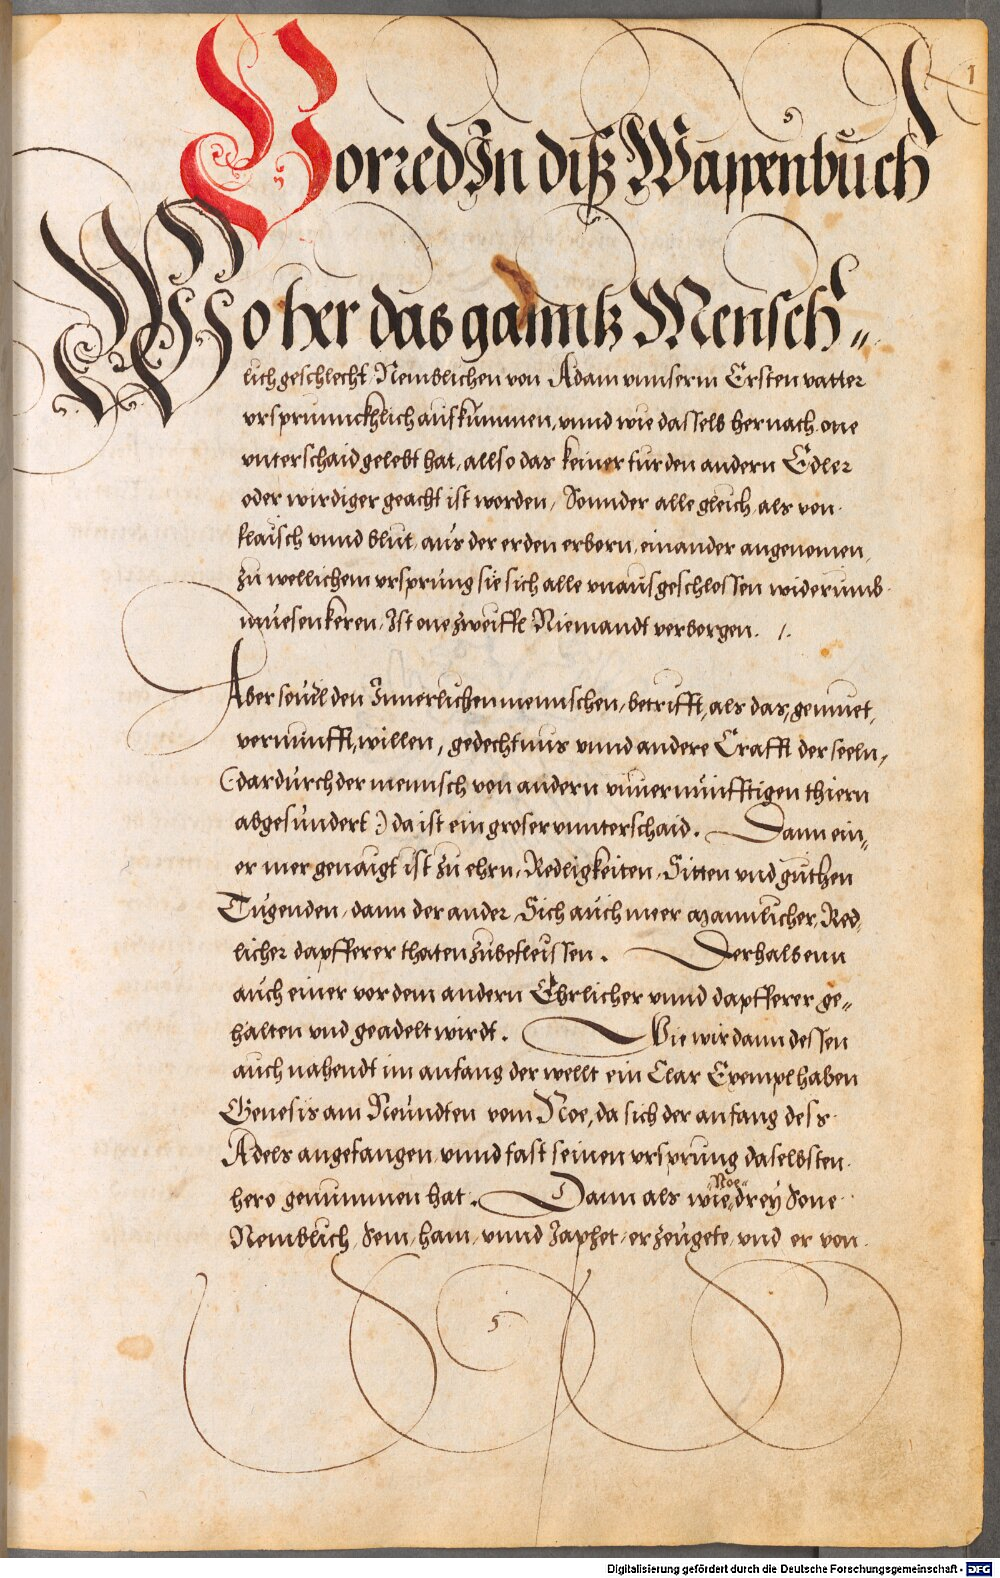 1
Vorred In diß Wappenbuch
Woher das ganntz Mensch„
lich geschlecht, Nemblichen von Adam vnnserm Ersten vatter
vrsprunnckhlich auskummen, vnnd wie dasselb hernach one
vnterschaid gelebt hat, allso das keiner fur den andern Edler
oder wirdiger geacht ist worden, Sonnder alle gleich als von
flaisch vnnd blut, aus der erden erborn, einander angenomen,
zu wellichem vrsprung sie sich alle vnausgeschlossen widerumb
muesen keren, Ist one zweiffl Niemandt verborgen. /.
Aber souil den Innerlichen mennschen, betrifft, als das, gemuet,
vernunfft, willen, gedechtnus vnnd andere Crafft der seeln,
(dardurch der mennsch von andern vnuernünfftigen thiern
abgesundert) da ist ein groser vnnterschaid. Dann ein„
er mer genaigt ist zu ehrn, Redligkeiten, Sitten vnd guthen
Tugenden, dann der ander, Sich auch meer Mannlicher, Red„
licher dapfferer thaten zubefleissen. Derhalbenn
auch einer vor dem andern Ehrlicher vnnd dapfferer ge„
halten vnd geadelt wirdt. Wie wir dann dessen
auch nahendt im anfang der wellt ein Clar Exempl haben
Genesis am Neundten vom Noe, da sich der anfang dess
Adels angefangen, vnnd fast seinen vrsprung daselbsten
hero genummen hat. Dann als wie „Noe„ drey Sone
Nemblich, Sem, ham, vnnd Japhet, erzeugete, vnd er von
Digitalisierung gefördert durch die Deutsche Forschungsgemeinschaft - DFG